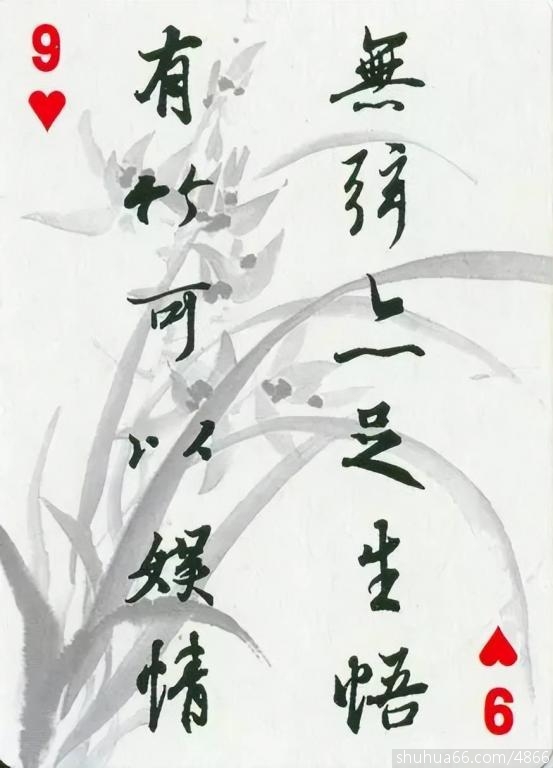 9
無弦亦足生悟
有竹可以娛情
9
shuhua66.com/4866